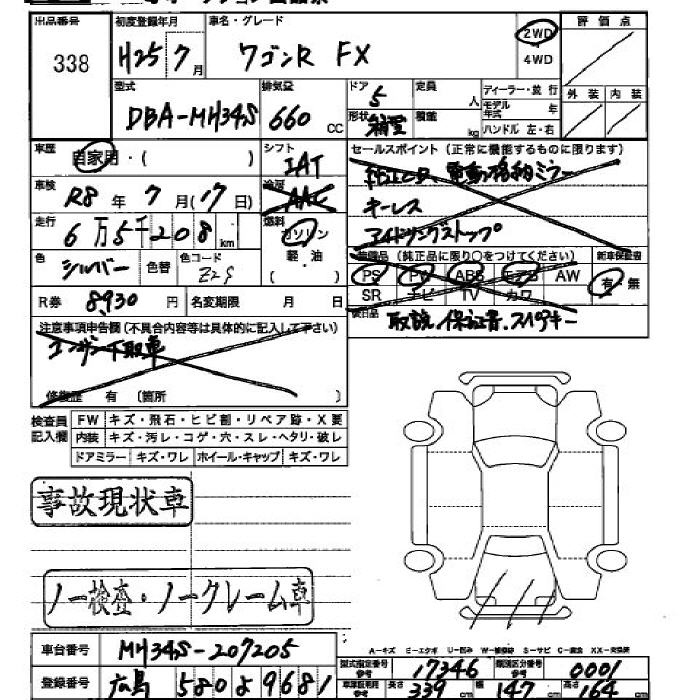 出品番号 初度登録年月 車名・グレード 評価点
338 H25年7月 ワゴンR FX 2WD
4WD
型式 排気量 ドア 5 定員 人 ディーラー・並行 外装 内装
DBA-MH34S 660cc 形状 積載 kg モデル年式 年
ハンドル 左・右
車歴 自家用・( ) シフト IAT セールスポイント(正常に機能するものに限ります)
車検 R8年7月(17日) 冷房 AAC 電動格納ミラー
走行 6万5千208km 燃料 ガソリン キーレス
軽油 アイドリングストップ
色 シルバー 色替 色コード Z2S 装備品(純正品に限り○をつけてください) 新車保証書
PS PW ABS エアB AW 有・無
SR ナビ TV カワ
R券 8,930円 名変期限 月 日 後日品 取説、保証書、スペアキー
注意事項申告欄(不具合内容等は具体的に記入して下さい)
エンジン不動車
修復歴 有(箇所 )
検査員記入欄 FW キズ・飛石・ヒビ割・リペア跡・X要
内装 キズ・汚レ・コゲ・穴・スレ・ヘタリ・破レ
ドアミラー キズ・ワレ ホイール・キャップ キズ・ワレ
事故現状車
ノー検査・ノークレーム車
A-キズ E-エクボ U-凹み W-補修跡 S-サビ C-腐食 XX-交換済
車台番号 MH34S-207205
型式指定番号 参考 17346 類別区分番号 参考 0001
登録番号 広島 580 よ 9681
長さ 339cm 幅 147cm 高さ 164cm